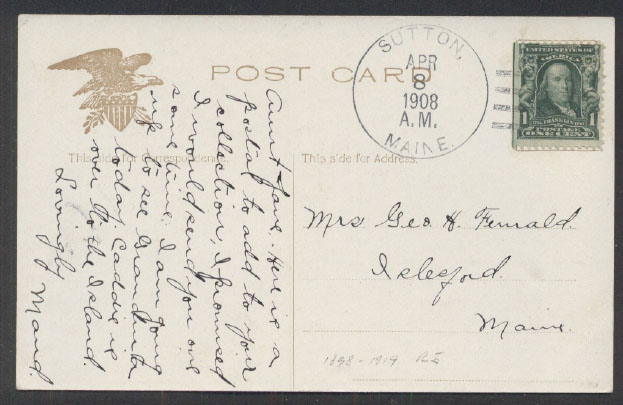 POST CARD
SUTTON,
APR
8
1908
A.M.
MAINE.
UNITED STATES OF
AMERICA
1 1
FRANKLIN
POSTAGE
ONE CENT
This side for Correspondence.
This side for Address.
Aunt Jane. Here is a
postal to add to your
collection, I promised
I would send you one
sometime. I am going
up to see Grandma
today. Caddie is
over to the Island
Lovingly
Maud.
Mrs Geo. H. Fernald.
Islesford.
Maine.
1898 - 1919